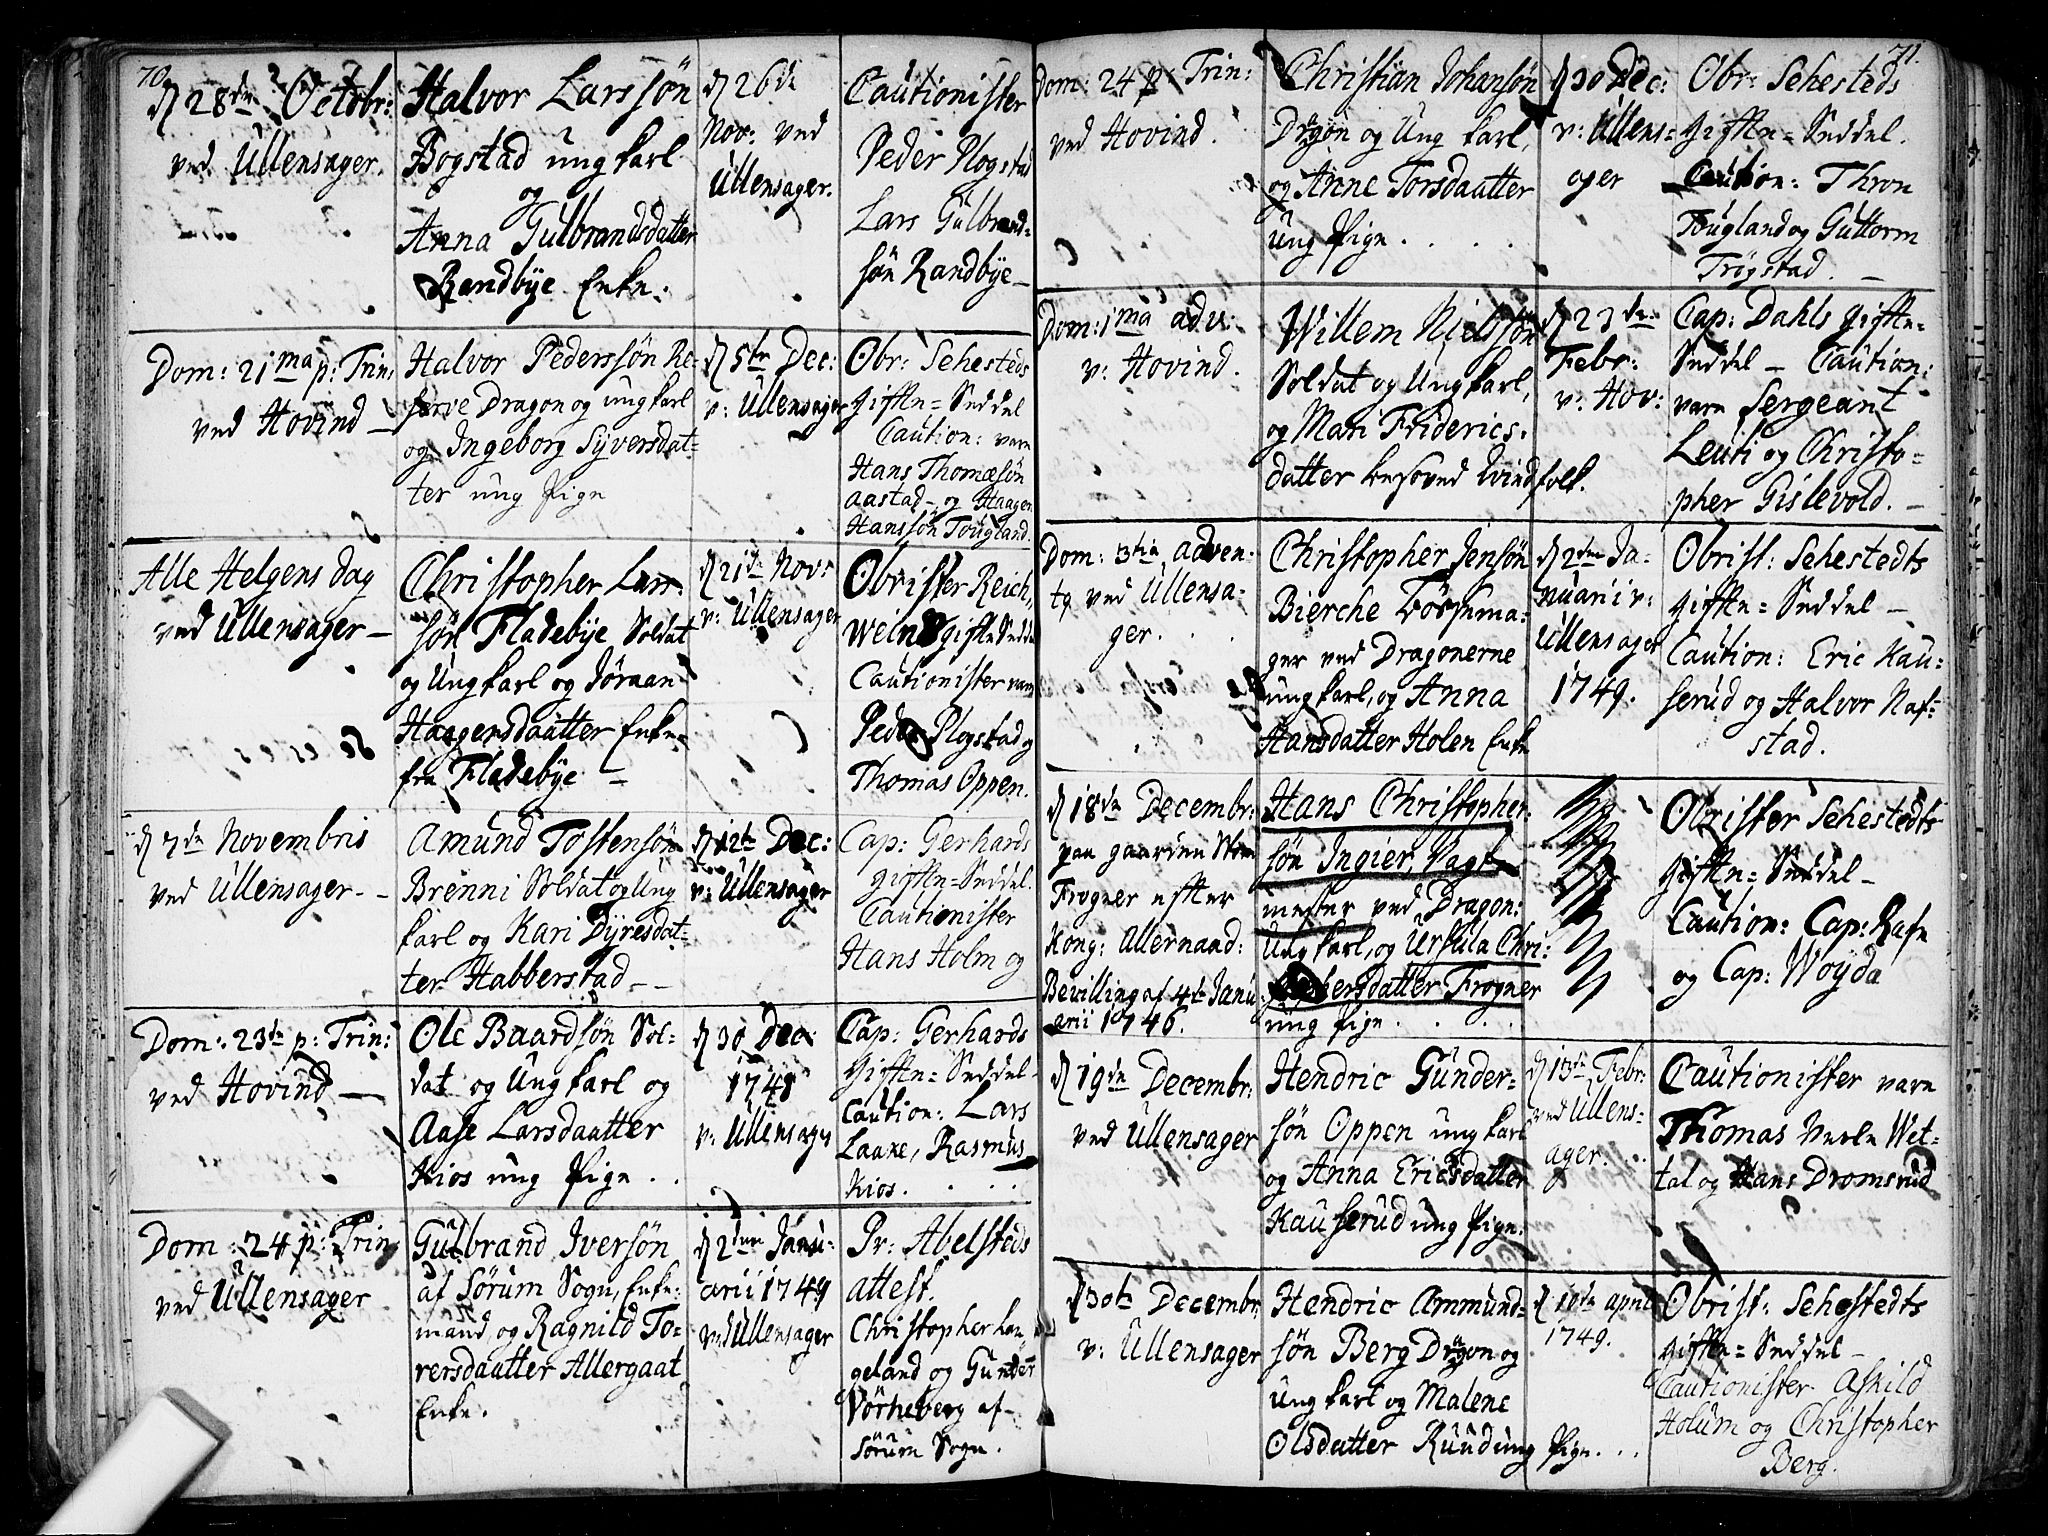 70.
d 28de Octobr:
ved Ullensager.
Halvor Larssön
Bogstad ung karl
og
Anna Gulbrandsdatter
Randbÿe Enke.
d 26de
Nov: ved
Ullensager.
Cautionister
Peder Plogstad
Lars Gulbrand=
sön Randbÿe –
Dom: 21ma p: Trin:
ved Hovind –
Halvor Pederssön Re-
serve Dragon og ung karl
og Ingeborg Sÿversdat=
ter ung Pige
d 5te Dec:
v: Ullensager
Obr: Sehesteds
gifte= Seddel
Caution: vare
Hans Thomæsön
Aastad – og Haagen
Hanssön Tougland.
Alle Helgens dag
ved Ullensager –
Christopher Lars-
sön Fladebÿe Soldat
og Ung karl og Jöraan
Haagensdaatter Enke
fra Fladebÿe –
d 21de Nov:
v: Ullensager
Obrister Reich,,
weins gifte Seddel
Cautionister vare
Peder Plogstad og
Thomas Oppen.
d 7de Novembris
ved Ullensager –
Amund Tostensön
Brenni Soldat og Ung
karl og Kari Dÿresdat=
ter Habberstad –
d 12te Dec:
v: Ullensager
Cap: Gerhards
gifte= Seddel.
Cautionister
Hans Holm og
Dom: 23de p: Trin:
ved Hovind –
Ole Baardsön Sol-
dat og Ung karl og
Aase Larsdaatter
Kios ung Pige . .
d 30 Dec:
1748
v: Ullensager
Cap: Gerhards
Gifte= Seddel –
Caution: Lars
Laake, Rasmus
Kios. . . .
Dom: 24 p: Trin:
ved Ullensager
Gulbrand Iversön
af Sörum Sogn, Enke-
mand, og Ragnild To=
rersdaatter Allergaat
Enke.
d 2den Janu-
arii 1749
ved Ullensager
Pr: Abelsteds
attest.
Christopher Hau
geland og Gunder
Vörheberg af
Sörum Sogn.
71.
Dom: 24 p: Trin:
ved Hovind.
Christian Johansön
Dragon og Ung karl,
og Anne Torsdaatter
Ung Pige . . . .
d 30 Dec:
v: Ullens=
ager
Obr: Sehesteds
Gifte= Seddel.
Caution: Thron
Tougland og Guttorm
Trögstad. –
Dom: 1ma adv:
v: Hovind.
Willem Nielssön
Soldat og Ung karl,
og Mari Friderics-
datter besoved Qvindfolk.
d 23de
Febr:
v: Hov:
Cap: Dahls gifte=
Seddel – Caution:
vare Sergeant
Leuti og Christo=
pher Gislevold. –
Dom: 3tia adven-
tq ved Ullensa-
ger.
Christopher Jensön
Bierche Bössema-
ger ved Dragonerne
ung karl, og Anna
Hansdatter Holen Enke
d 2den Ja-
nuarii v:
Ullensager
1749.
Obrist: Sehestedts
Gifte= Seddel –
Caution: Eric Kau=
serud og Halvor Naf=
stad.
d 18de Decembr:
paa gaarden
Frogner efter
Kong: Allernaad:
Bevilling af 4de Janu
arii 1746.
Hans Christopher-
sön Ingier, Vagt-
mester ved Dragon:
Ung karl, og Ursula Chri=
Frogner
ung Pige . . . .
Obrister Sehestedts
gifte= Seddel –
Caution: Cap: Rafn
og Cap: Woyda
d 19de Decembr:
ved Ullensager
Hendric Gunder-
sön Oppen ung karl
og Anna Ericsdatter
Kauserud ung Pige.
d 13de Febr:
ved Ullens-
ager. . .
Cautionister vare
Thomas Nerle Wet=
tal og Hans Dromsrud
d 30te Decembr:
v: Ullensager
Hendric Ammund=
sön Berg Dragon og
Ung karl og Malene
Olsdatter Ruud ung Pige. . .
d 10te April
1749.
Obrist: Sehestedts
gifte= Seddel –
Cautionister Askild
Holum og Christopher
Berg.